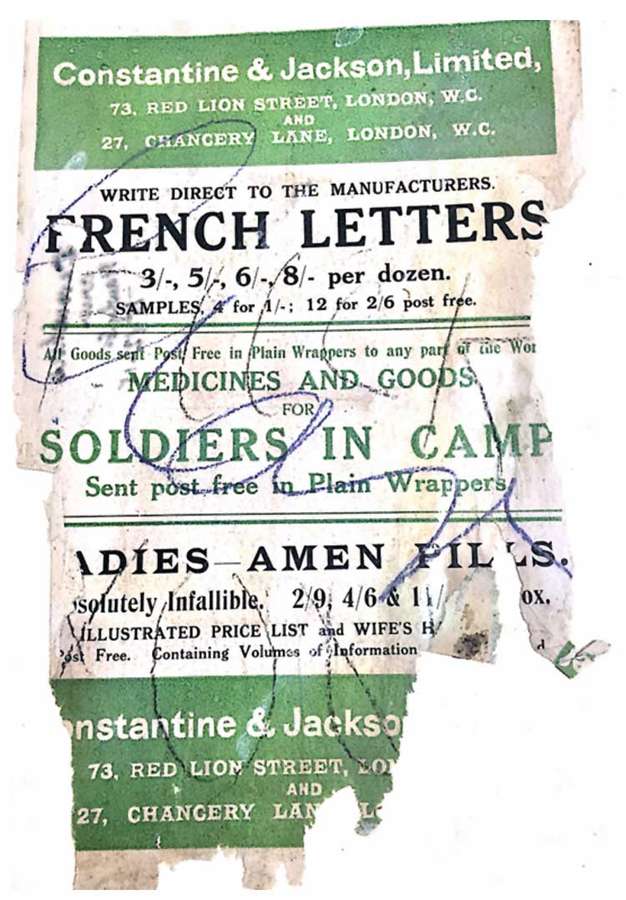 Constantine & Jackson, Limited,
73, RED LION STREET, LONDON, W.C.
AND
27, CHANCERY LANE, LONDON, W.C.
WRITE DIRECT TO THE MANUFACTURERS.
FRENCH LETTERS
3/-, 5/-, 6/-, 8/- per dozen.
SAMPLES, 4 for 1/-; 12 for 2/6 post free.
All Goods sent Post Free in Plain Wrappers to any part of the Wor
MEDICINES AND GOODS
FOR
SOLDIERS IN CAMP
Sent post free in Plain Wrappers
ADIES—AMEN PILLS.
solutely Infallible. 2/9, 4/6 & 11/ ox.
ILLUSTRATED PRICE LIST and WIFE'S H
Post Free. Containing Volumes of Information d
onstantine & Jackso
73, RED LION STREET, LON
AND
27, CHANCERY LAN LO